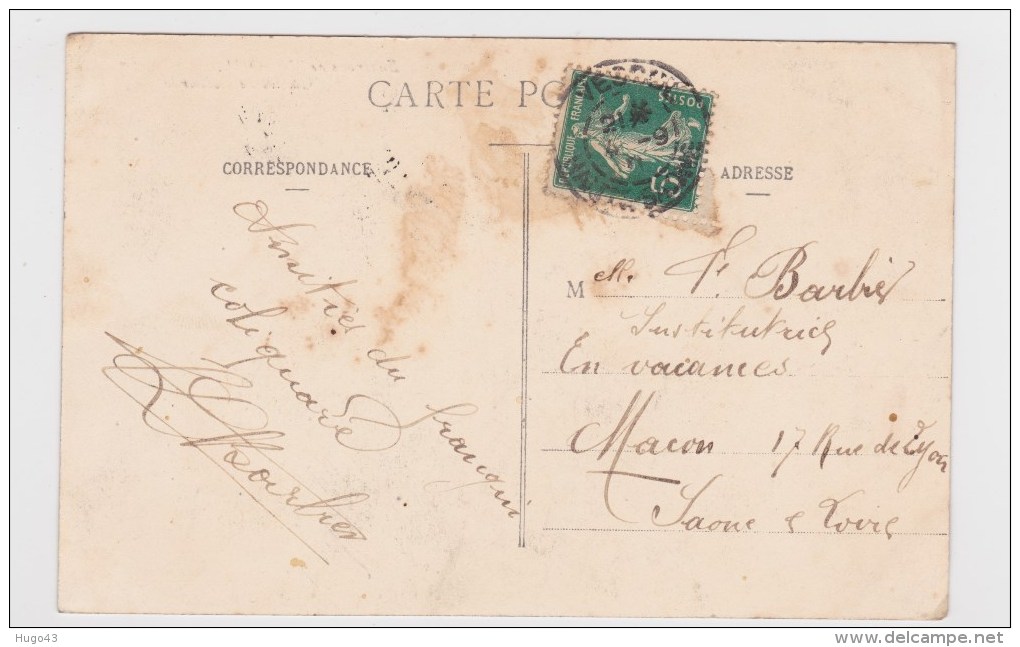 CARTE PO
CORRESPONDANCE
ADRESSE
RÉPUBLIQUE FRANÇAISE
POSTES
5
Amitiés du franqui
cotiguard
Barbier
Melle. F. Barbier
Institutrice
En vacances
Macon 17 Rue de Lyon
Saone & Loire
Hugo43
www.delcampe.net